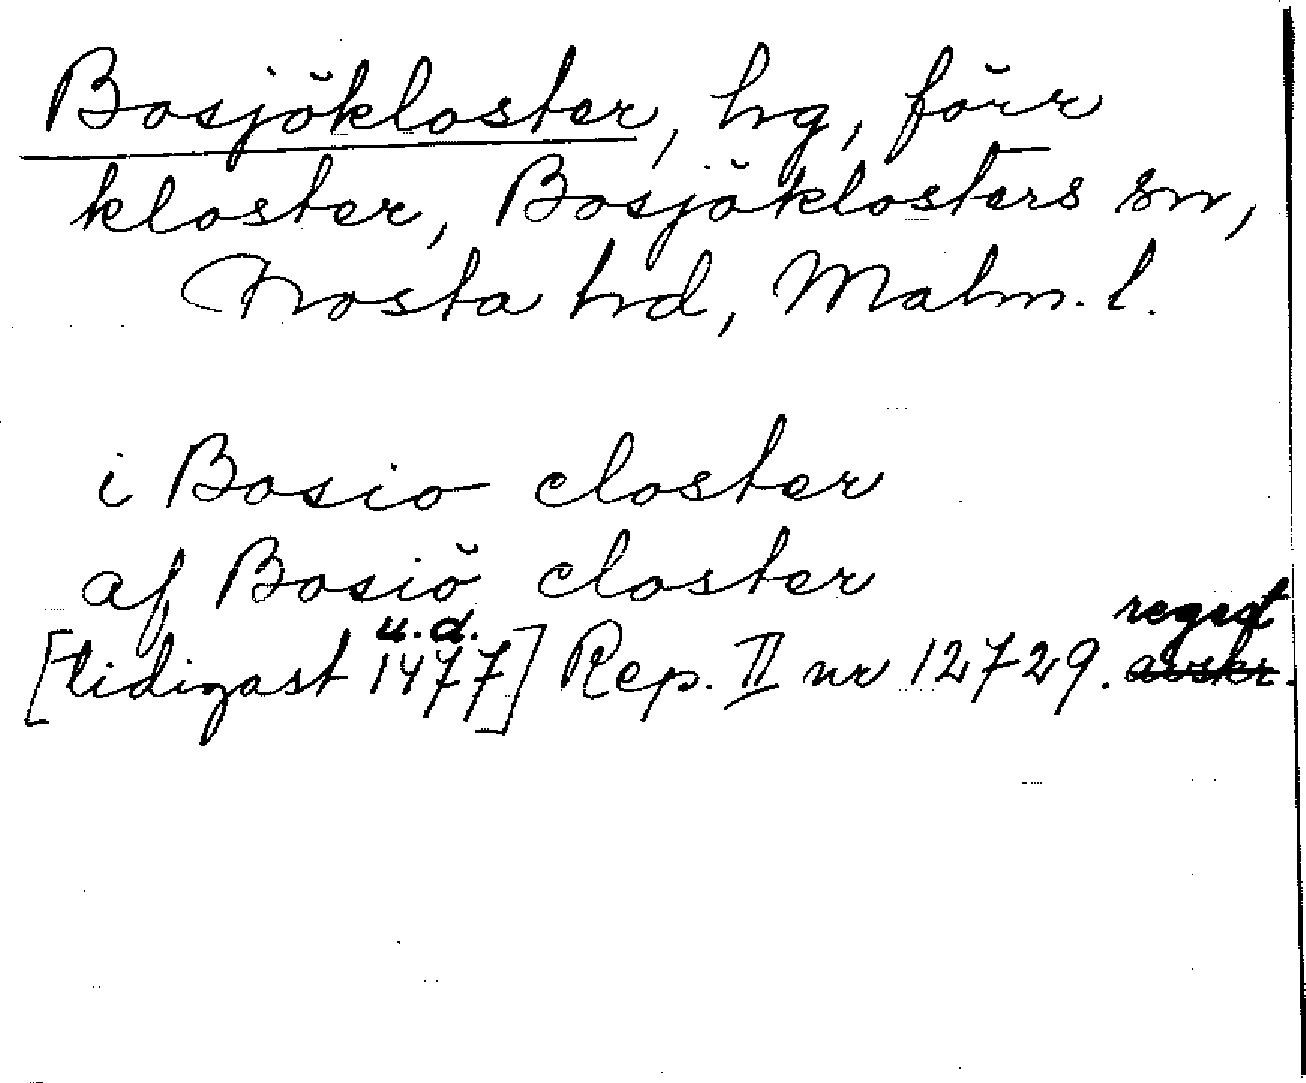 Bosjökloster, hg, förr
kloster, Bosjöklosters sn,
Frosta hd, Malm. l.
i Bosio closter
af Bosiö closter
u.d. regest
[tidigast 1477] Rep. II nr 12729. avskr.